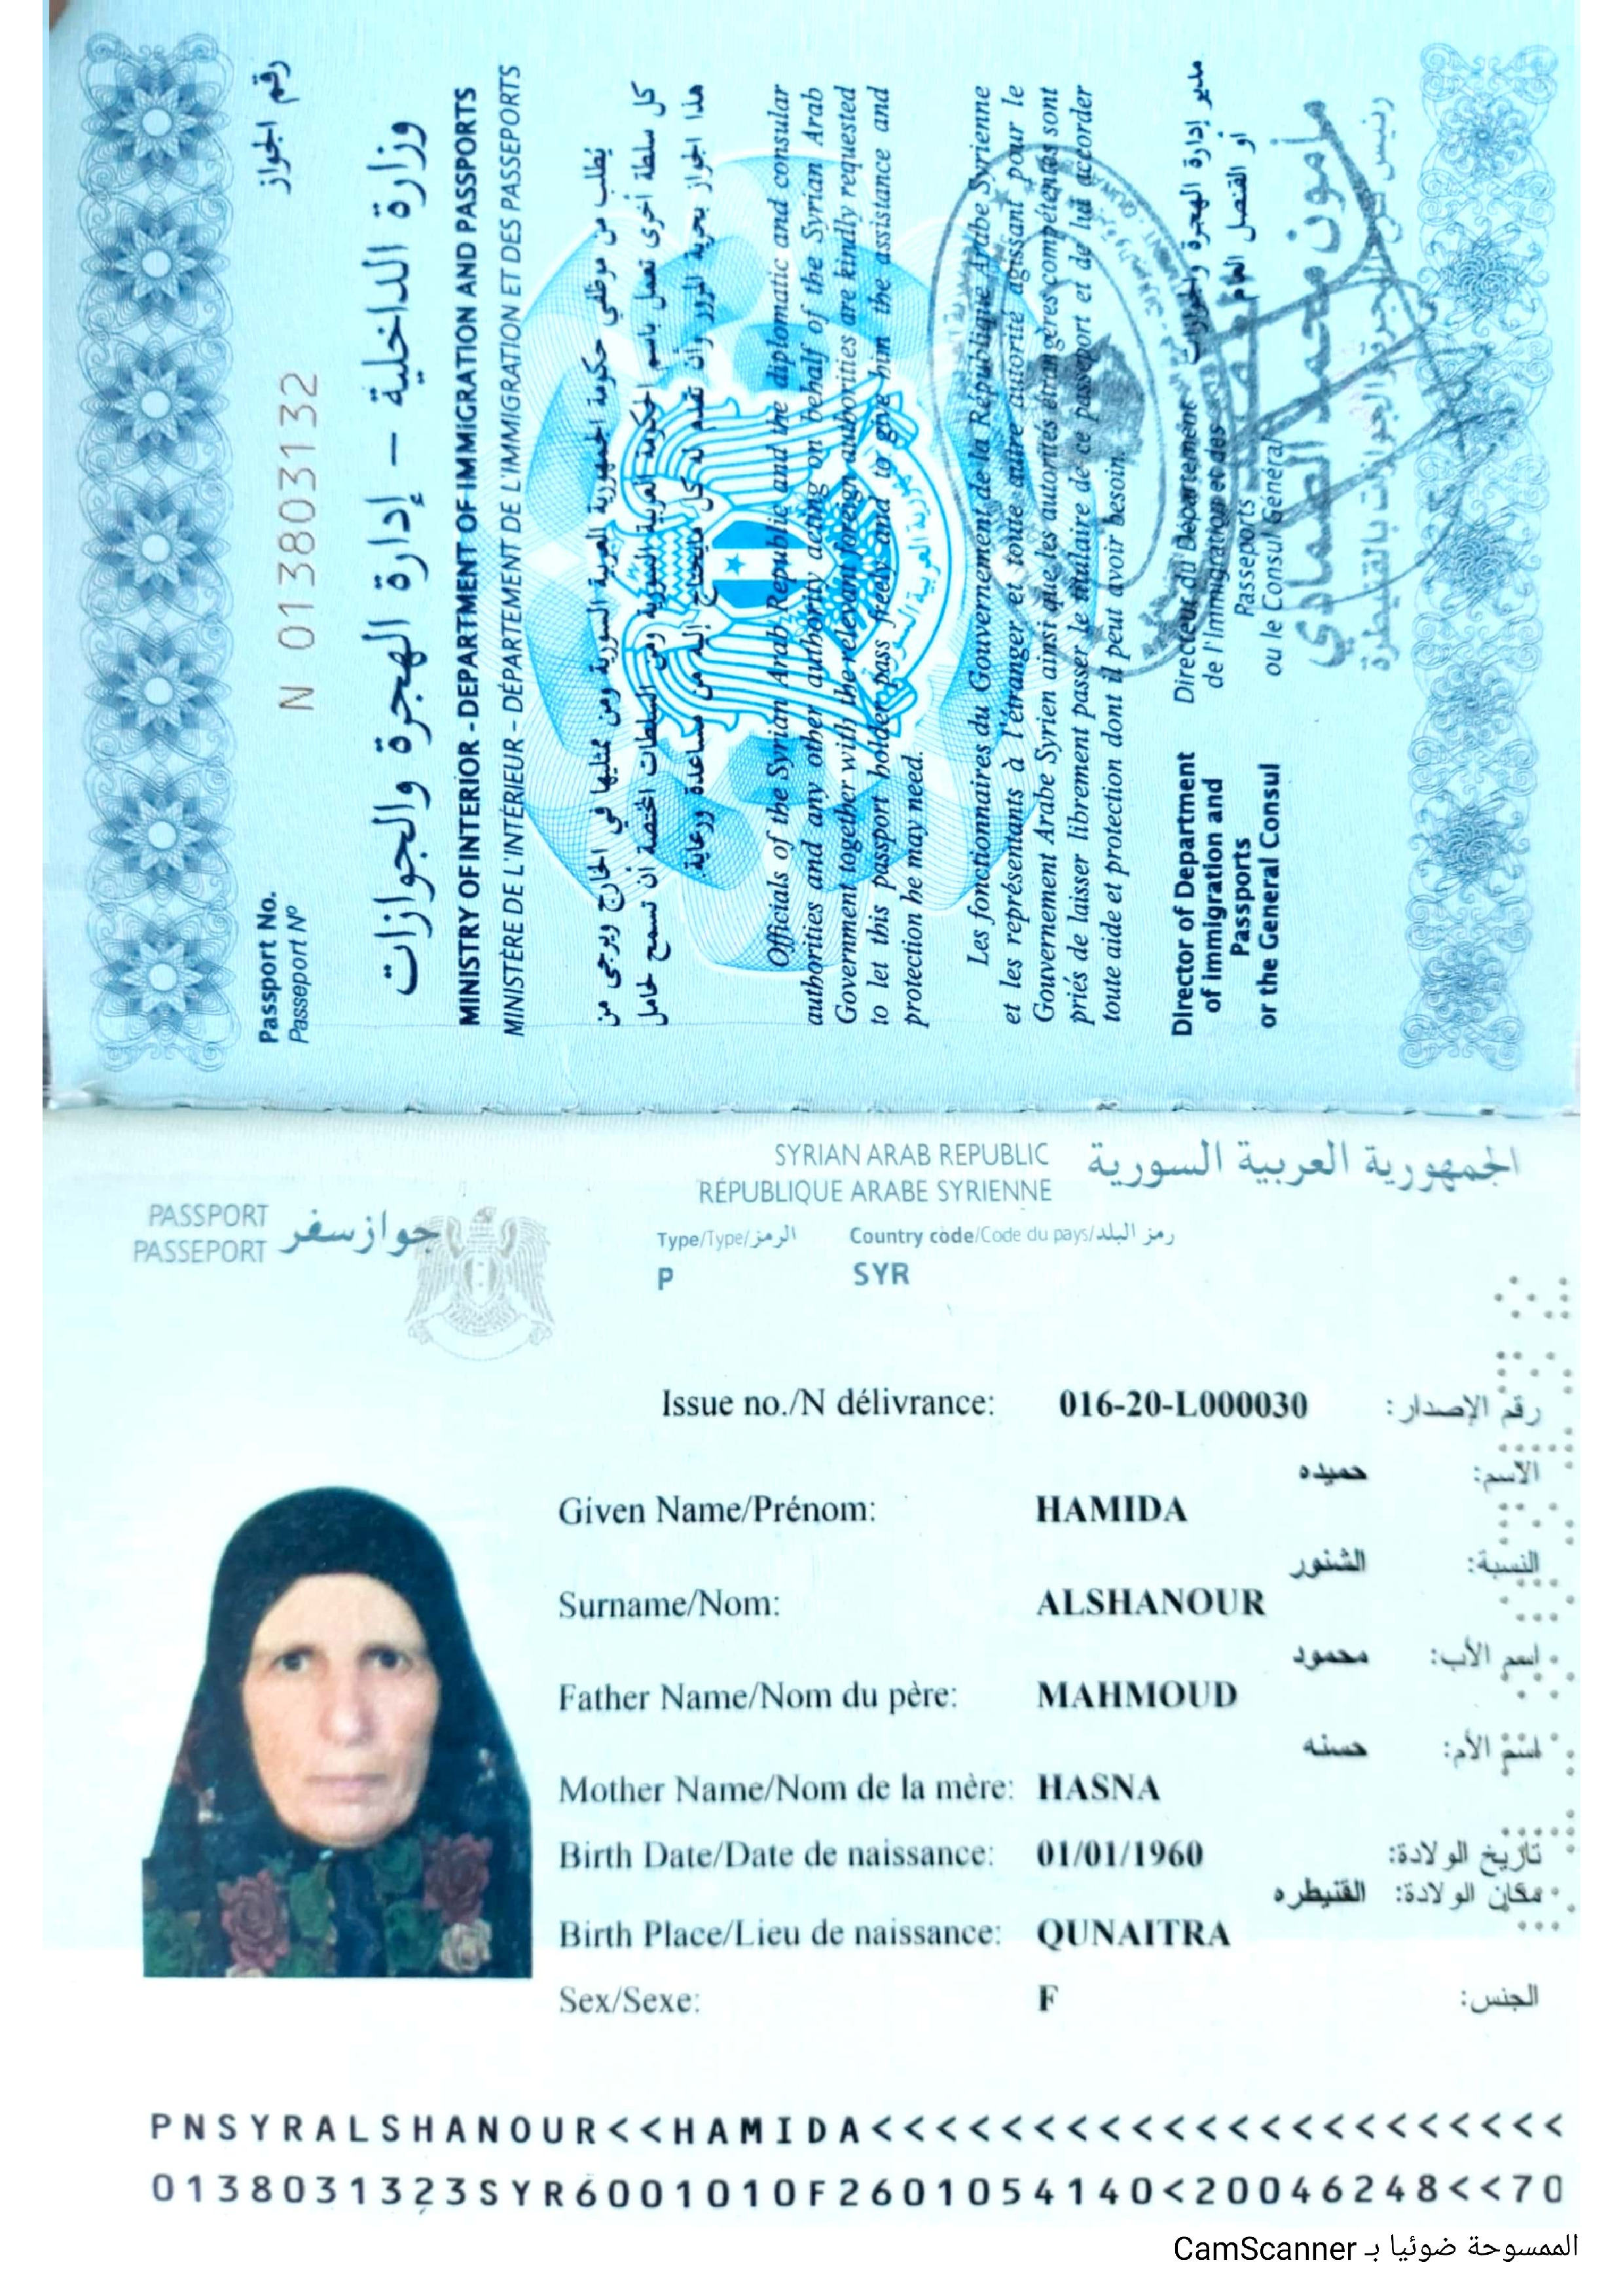 رقم الجواز
N 013803132
Passport No.
Passeport Nº
وزارة الداخلية – إدارة الهجرة والجوازات
MINISTRY OF INTERIOR - DEPARTMENT OF IMMIGRATION AND PASSPORTS
MINISTÈRE DE L'INTÉRIEUR – DÉPARTEMENT DE L'IMMIGRATION ET DES PASSEPORTS
يُطلب من موظفي حكومة الجمهورية العربية السورية ومن ممثليها في الخارج ويرجى من
كل سلطة أخرى تعمل باسم الحكومة العربية السورية ومن السلطات المختصة أن تسمح لحامل
هذا الجواز بحرية المرور وأن تقدم له كل مايحتاج إليه من مساعدة ورعاية.
Officials of the Syrian Arab Republic and the diplomatic and consular
authorities and any other authority acting on behalf of the Syrian Arab
Government together with the relevant foreign authorities are kindly requested
to let this passport holder pass freely and to give him the assistance and
protection he may need.
Les fonctionnaires du Gouvernement de la République Arabe Syrienne
et les représentants à l'étranger et toute autre autorité agissant pour le
Gouvernement Arabe Syrien ainsi que les autorités étrangères compétentes sont
priés de laisser librement passer le titulaire de ce passeport et de lui accorder
toute aide et protection dont il peut avoir besoin.
مدير إدارة الهجرة والجوازات
أو القنصل العام
Directeur du Département
de l'Immigration et des
Passeports
ou le Consul Général
Director of Department
of Immigration and
Passports
or the General Consul
مأمون محمد الصمادي
الجمهورية العربية السورية
SYRIAN ARAB REPUBLIC الجمهورية العربية السورية
RÉPUBLIQUE ARABE SYRIENNE
PASSPORT جواز سفر
PASSEPORT
Type/Type/الرمز Country code/Code du pays/رمز البلد
P SYR
Issue no./N délivrance: 016-20-L000030 رقم الإصدار:
الاسم: حميده
Given Name/Prénom: HAMIDA
النسبة: الشنور
Surname/Nom: ALSHANOUR
اسم الأب: محمود
Father Name/Nom du père: MAHMOUD
اسم الأم: حسنه
Mother Name/Nom de la mère: HASNA
Birth Date/Date de naissance: 01/01/1960 تاريخ الولادة:
مكان الولادة: القنيطره
Birth Place/Lieu de naissance: QUNAITRA
Sex/Sexe: F الجنس:
PNSYRALSHANOUR<<HAMIDA<<<<<<<<<<<<<<<<<<<<<<
0138031323SYR6001010F2601054140<20046248<<70
الممسوحة ضوئيا بـ CamScanner